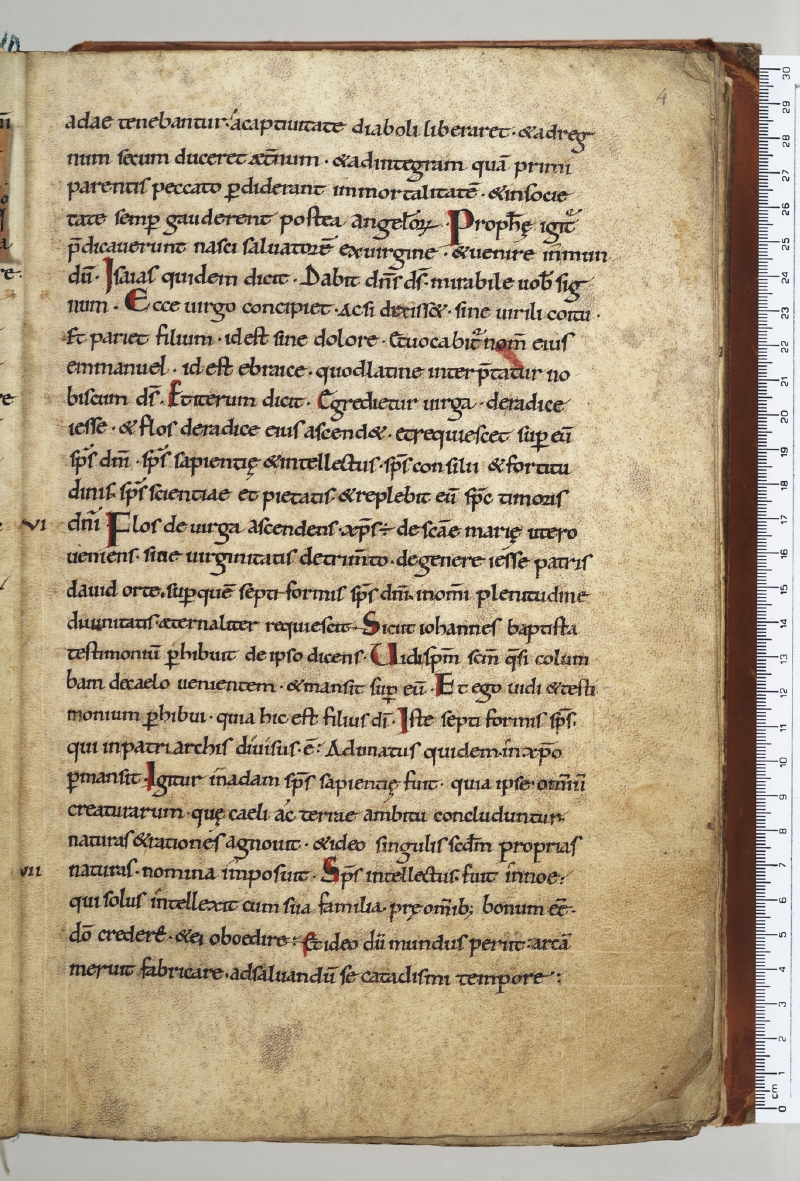 4
adae tenebantur· a captiuitate diaboli liberaret· & ad reg
num secum duceret æt̄num· & ad integram quā primi
parentis peccato ꝑdiderant immortalitatē· & in socie
tate semꝑ gauderent postea angelorꝝ. Prophę̄ igit᷑
p̄dicauerunt nasci saluatorē ex uirgine· & uenire in mun
dū· Isaias quidem dicit· Dabit dn̄s ds̄· mirabile uob̄ sig
num· Ecce uirgo concipiet· ac si dixiss&· sine uirili coitu·
Et pariet filium· id est sine dolore· Et uocabit᷑ nom̄ eius
emmanuel· id est ebraice· quod latine interp̄tatur no
biscum ds̄· Et iterum dicit· Egredietur uirga· de radice
iesse· & flos de radice eius ascend&· et requiescet suꝑ eū
sp̄s dn̄i· sp̄s sapientię & intellectus· sp̄s consilii & fortitu
dinis· sp̄s scientiae et pietatis· & replebit eū sp̄c timoris
VI dn̄i Flos de uirga ascendens· xp̄s÷ de scāe marię utero
ueniens· sine uirginitatis detrim̄to· de genere iesse patris
dauid orte· suꝑ quē septiformis sp̄s dn̄i· in om̄i plenitudine
diuinitatis· æternaliter requiescit· Sicut iohannes baptista
testimoniū ꝑhibuit de ipso dicens· Uidi sp̄m sc̄m q̄si colum
bam de caelo uenientem· & mansit suꝑ eū· Et ego uidi & testi
monium ꝑhibui· quia hic est filius dī· Iste septiformis sp̄s·
qui in patriarchis diuisus· ē· Adunatus quidem· in xp̄o
ꝑmansit· Igitur in adam sp̄s sapientię fuit· quia ipse omniū
creaturarum· quę caeli ac terrae ambitu concluduntur·
naturas & rationes agnouit· & ideo singulis sc̄dm proprias
VII naturas· nomina imposuit· Sp̄s intellectus· fuit in noe·
qui solus intellexit cum sua familia· prę om̄ib; bonum eē·
dō credere· & ei oboedire· Et ideo dū mundus periit· arcā
meruit fabricare· ad saluandū se cataclismi tempore·: